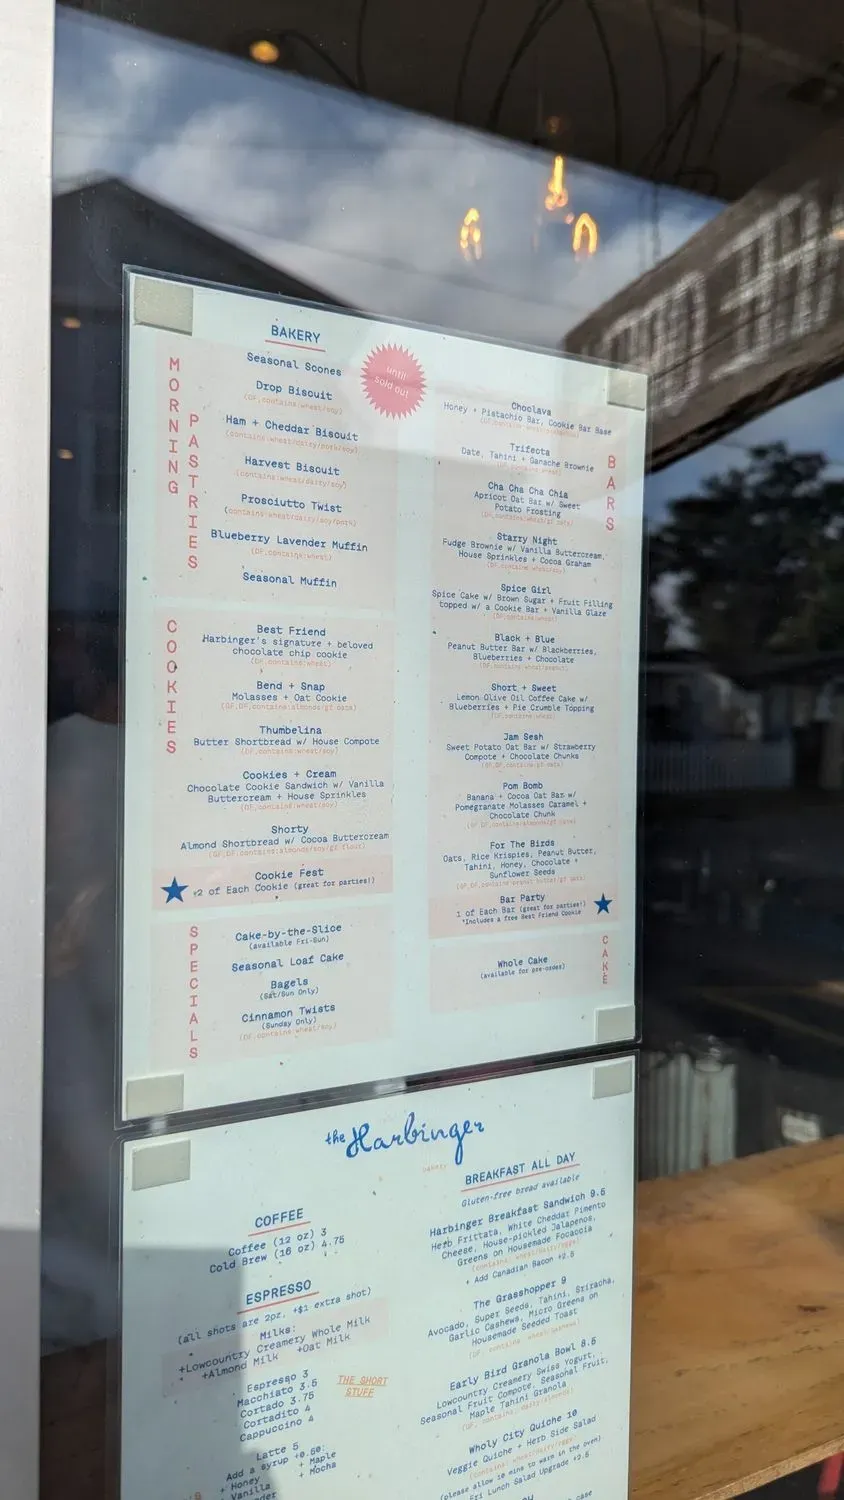 BAKERY
until
sold out
MORNING
PASTRIES
Seasonal Scones
Drop Biscuit
(DF, contains:wheat/soy)
Ham + Cheddar Biscuit
(contains:wheat/dairy/pork/soy)
Harvest Biscuit
(contains:wheat/dairy/soy)
Prosciutto Twist
(contains:wheat/dairy/soy/pork)
Blueberry Lavender Muffin
(DF, contains:wheat)
Seasonal Muffin
COOKIES
Best Friend
Harbinger's signature + beloved
chocolate chip cookie
(DF, contains:wheat)
Bend + Snap
Molasses + Oat Cookie
(GF,DF,contains:almonds/gf oats)
Thumbelina
Butter Shortbread w/ House Compote
(DF, contains:wheat/soy)
Cookies + Cream
Chocolate Cookie Sandwich w/ Vanilla
Buttercream + House Sprinkles
(DF, contains:wheat/soy)
Shorty
Almond Shortbread w/ Cocoa Buttercream
(GF,DF,contains:almonds/soy/gf flour)
Cookie Fest
+2 of Each Cookie (great for parties!)
SPECIALS
Cake-by-the-Slice
(available Fri-Sun)
Seasonal Loaf Cake
Bagels
(Sat/Sun Only)
Cinnamon Twists
(Sunday Only)
(DF, contains:wheat/soy)
BARS
Choclava
Honey + Pistachio Bar, Cookie Bar Base
Trifecta
Date, Tahini + Ganache Brownie
(DF, contains:wheat)
Cha Cha Cha Chia
Apricot Oat Bar w/ Sweet
Potato Frosting
(DF,contains:wheat/gf oats)
Starry Night
Fudge Brownie w/ Vanilla Buttercream,
House Sprinkles + Cocoa Graham
(DF, contains:wheat/soy)
Spice Girl
Spice Cake w/ Brown Sugar + Fruit Filling
topped w/ a Cookie Bar + Vanilla Glaze
(DF,contains:wheat)
Black + Blue
Peanut Butter Bar w/ Blackberries,
Blueberries + Chocolate
(DF,contains:wheat/peanut)
Short + Sweet
Lemon Olive Oil Coffee Cake w/
Blueberries + Pie Crumble Topping
(DF,contains:wheat)
Jam Sesh
Sweet Potato Oat Bar w/ Strawberry
Compote + Chocolate Chunks
(GF,DF,contains:gf oats)
Pom Bomb
Banana + Cocoa Oat Bar w/
Pomegranate Molasses Caramel +
Chocolate Chunk
(GF,DF,contains:almonds/gf oats)
For The Birds
Oats, Rice Krispies, Peanut Butter,
Tahini, Honey, Chocolate +
Sunflower Seeds
(GF,DF,contains:peanut butter/gf oats)
Bar Party
1 of Each Bar (great for parties!)
*Includes a free Best Friend Cookie
CAKE
Whole Cake
(available for pre-order)
the Harbinger
BAKERY
COFFEE
Coffee (12 oz) 3
Cold Brew (16 oz) 4.75
ESPRESSO
(all shots are 2oz, +$1 extra shot)
Milks:
+Lowcountry Creamery Whole Milk
+Almond Milk +Oat Milk
Espresso 3
Macchiato 3.5
Cortado 3.75
Cortadito 4
Cappuccino 4
THE SHORT
STUFF
Latte 5
Add a syrup +0.50:
+ Honey + Maple
Vanilla + Mocha
BREAKFAST ALL DAY
Gluten-free bread available
Harbinger Breakfast Sandwich 9.5
Herb Frittata, White Cheddar Pimento
Cheese, House-pickled Jalapenos,
Greens on Housemade Focaccia
(contains: wheat/dairy/eggs)
+ Add Canadian Bacon +2.5
The Grasshopper 9
Avocado, Super Seeds, Tahini, Sriracha,
Garlic Cashews, Micro Greens on
Housemade Seeded Toast
(DF, contains: wheat/cashews)
Early Bird Granola Bowl 8.5
Lowcountry Creamery Swiss Yogurt,
Seasonal Fruit Compote, Seasonal Fruit,
Maple Tahini Granola
(GF, contains: dairy/almonds)
Wholy City Quiche 10
Veggie Quiche + Herb Side Salad
(contains: wheat/dairy/eggs)
(please allow 10 mins to warm in the oven)
Fri Lunch Salad Upgrade +2.5
case